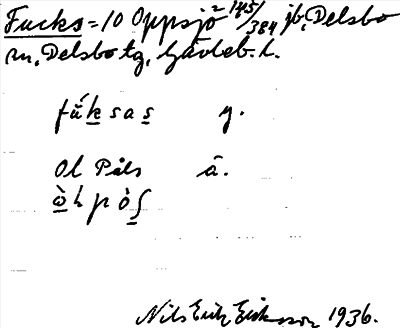 Fucks = 10 Oppsjö² 145/384 jb, Delsbo
sn, Delsbo tg, Gävleb. l.
fǘksas y.
Ol Påls å.
òlpòʃ
Nils Erik Eriksson 1936.